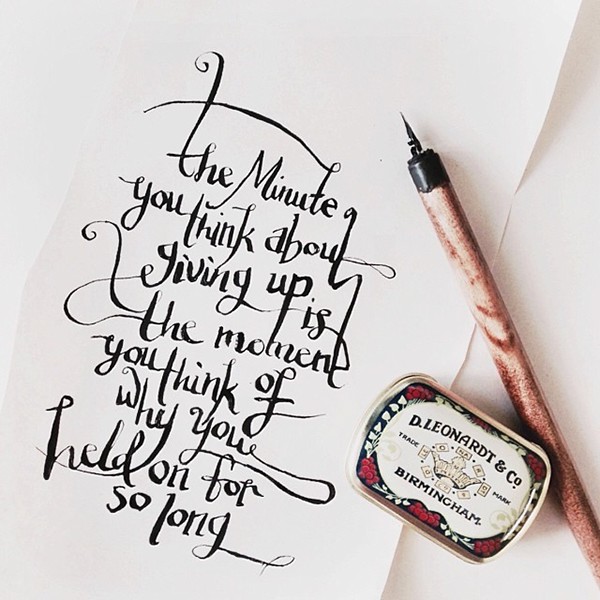 the Minute
you think about
giving up is
the moment
you think of
why you
held on for
so long
D. LEONARDT & CO
TRADE MARK
BIRMINGHAM.